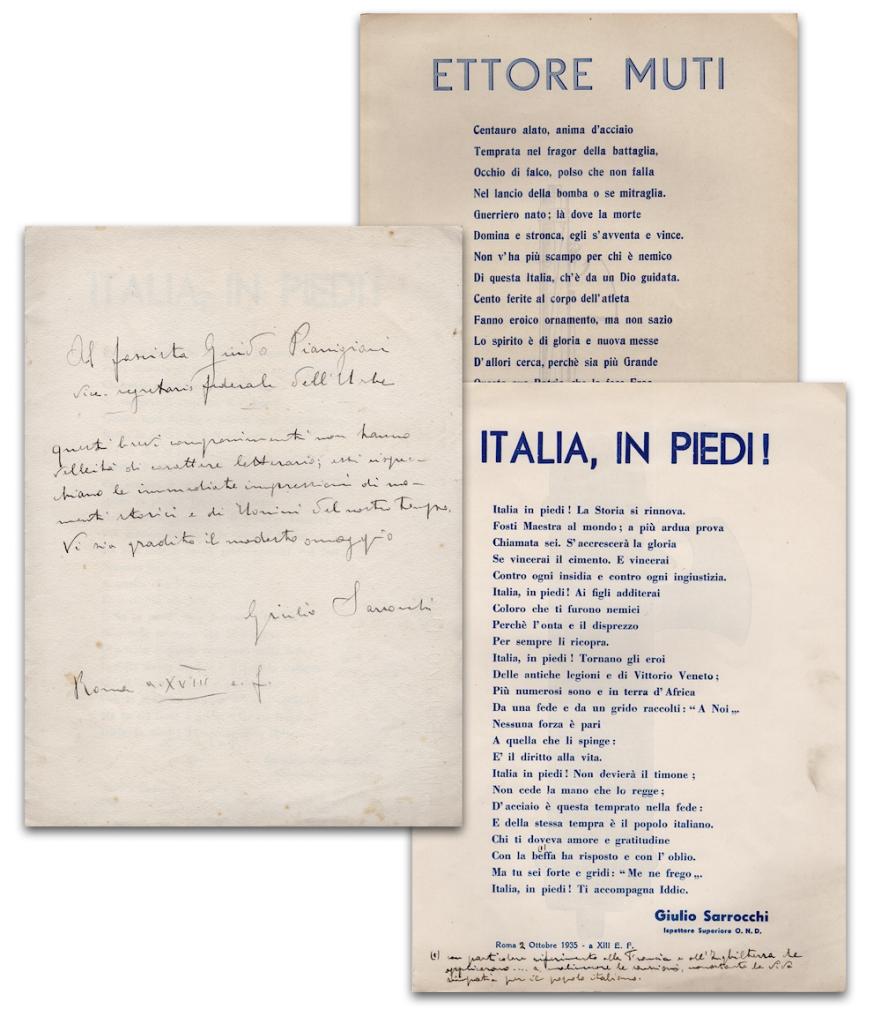 ETTORE MUTI
Centauro alato, anima d'acciaio
Temprata nel fragor della battaglia,
Occhio di falco, polso che non falla
Nel lancio della bomba o se mitraglia.
Guerriero nato; là dove la morte
Domina e stronca, egli s'avventa e vince.
Non v'ha più scampo per chi è nemico
Di questa Italia, ch'è da un Dio guidata.
Cento ferite al corpo dell'atleta
Fanno eroico ornamento, ma non sazio
Lo spirito è di gloria e nuova messe
D'allori cerca, perchè sia più Grande
Al fascista Guido Pianigiani
vice-segretario federale dell'Urbe
Questi brevi componimenti non hanno
velleità di carattere letterario; essi rispec-
chiano le immediate impressioni di mo-
menti storici e di Uomini del nostro tempo.
Vi sia gradito il modesto omaggio
Giulio Sarrocchi
Roma a. XVIII e. f.
ITALIA, IN PIEDI!
Italia in piedi! La Storia si rinnova.
Fosti Maestra al mondo; a più ardua prova
Chiamata sei. S'accrescerà la gloria
Se vincerai il cimento. E vincerai
Contro ogni insidia e contro ogni ingiustizia.
Italia, in piedi! Ai figli additerai
Coloro che ti furono nemici
Perchè l'onta e il disprezzo
Per sempre li ricopra.
Italia, in piedi! Tornano gli eroi
Delle antiche legioni e di Vittorio Veneto;
Più numerosi sono e in terra d'Africa
Da una fede e da un grido raccolti: "A Noi„.
Nessuna forza è pari
A quella che li spinge:
E' il diritto alla vita.
Italia in piedi! Non devierà il timone;
Non cede la mano che lo regge;
D'acciaio è questa temprato nella fede:
E della stessa tempra è il popolo italiano.
Chi ti doveva amore e gratitudine
Con la beffa (1) ha risposto e con l'oblio.
Ma tu sei forte e gridi: "Me ne frego„.
Italia, in piedi! Ti accompagna Iddio.
Giulio Sarrocchi
Ispettore Superiore O. N. D.
Roma 2 Ottobre 1935 - a XIII E. F.
(1) con particolare riferimento alla Francia e all'Inghilterra che
applicarono ... a, le sanzioni, nonostante la viva
simpatia per il popolo italiano.